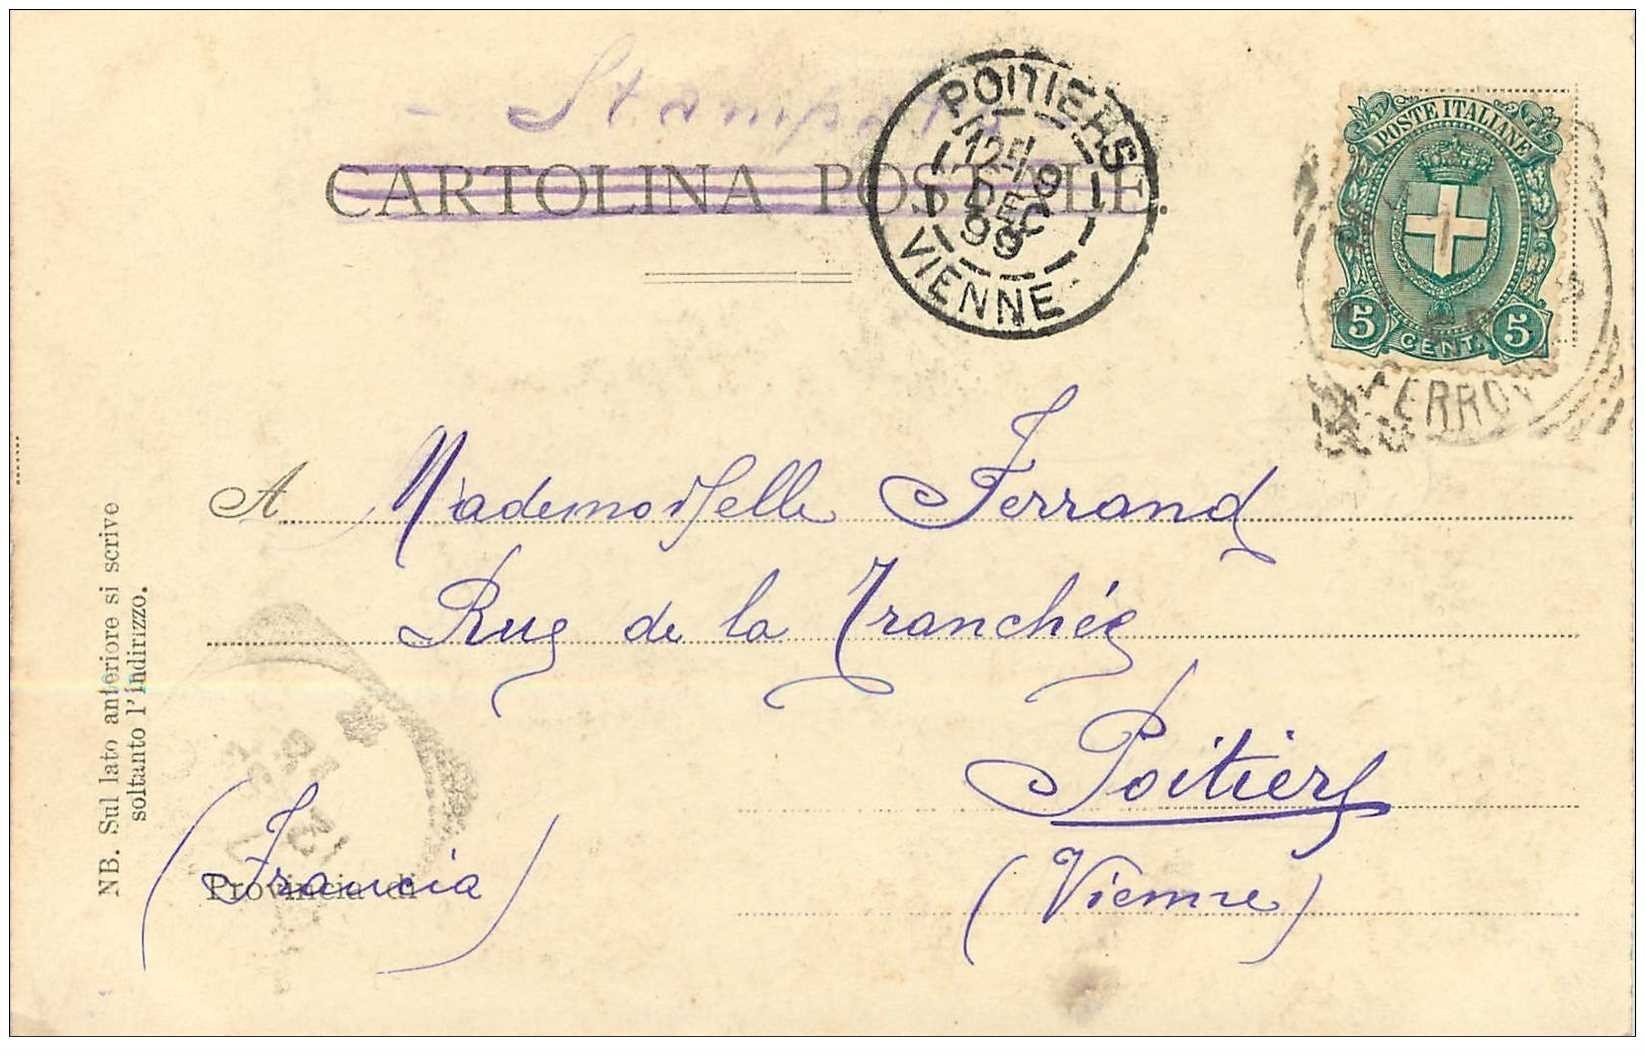 - Stampat
CARTOLINA POSTALE.
POITIERS
12
9
DEC
99
VIENNE
POSTE ITALIANE
5 CENT. 5
FERROV
A Mademoiselle Ferrand
Rue de la Tranchée
Poitiers
(Vienne)
Provincia di
(Francia)
NB. Sul lato anteriore si scrive
soltanto l'indirizzo.